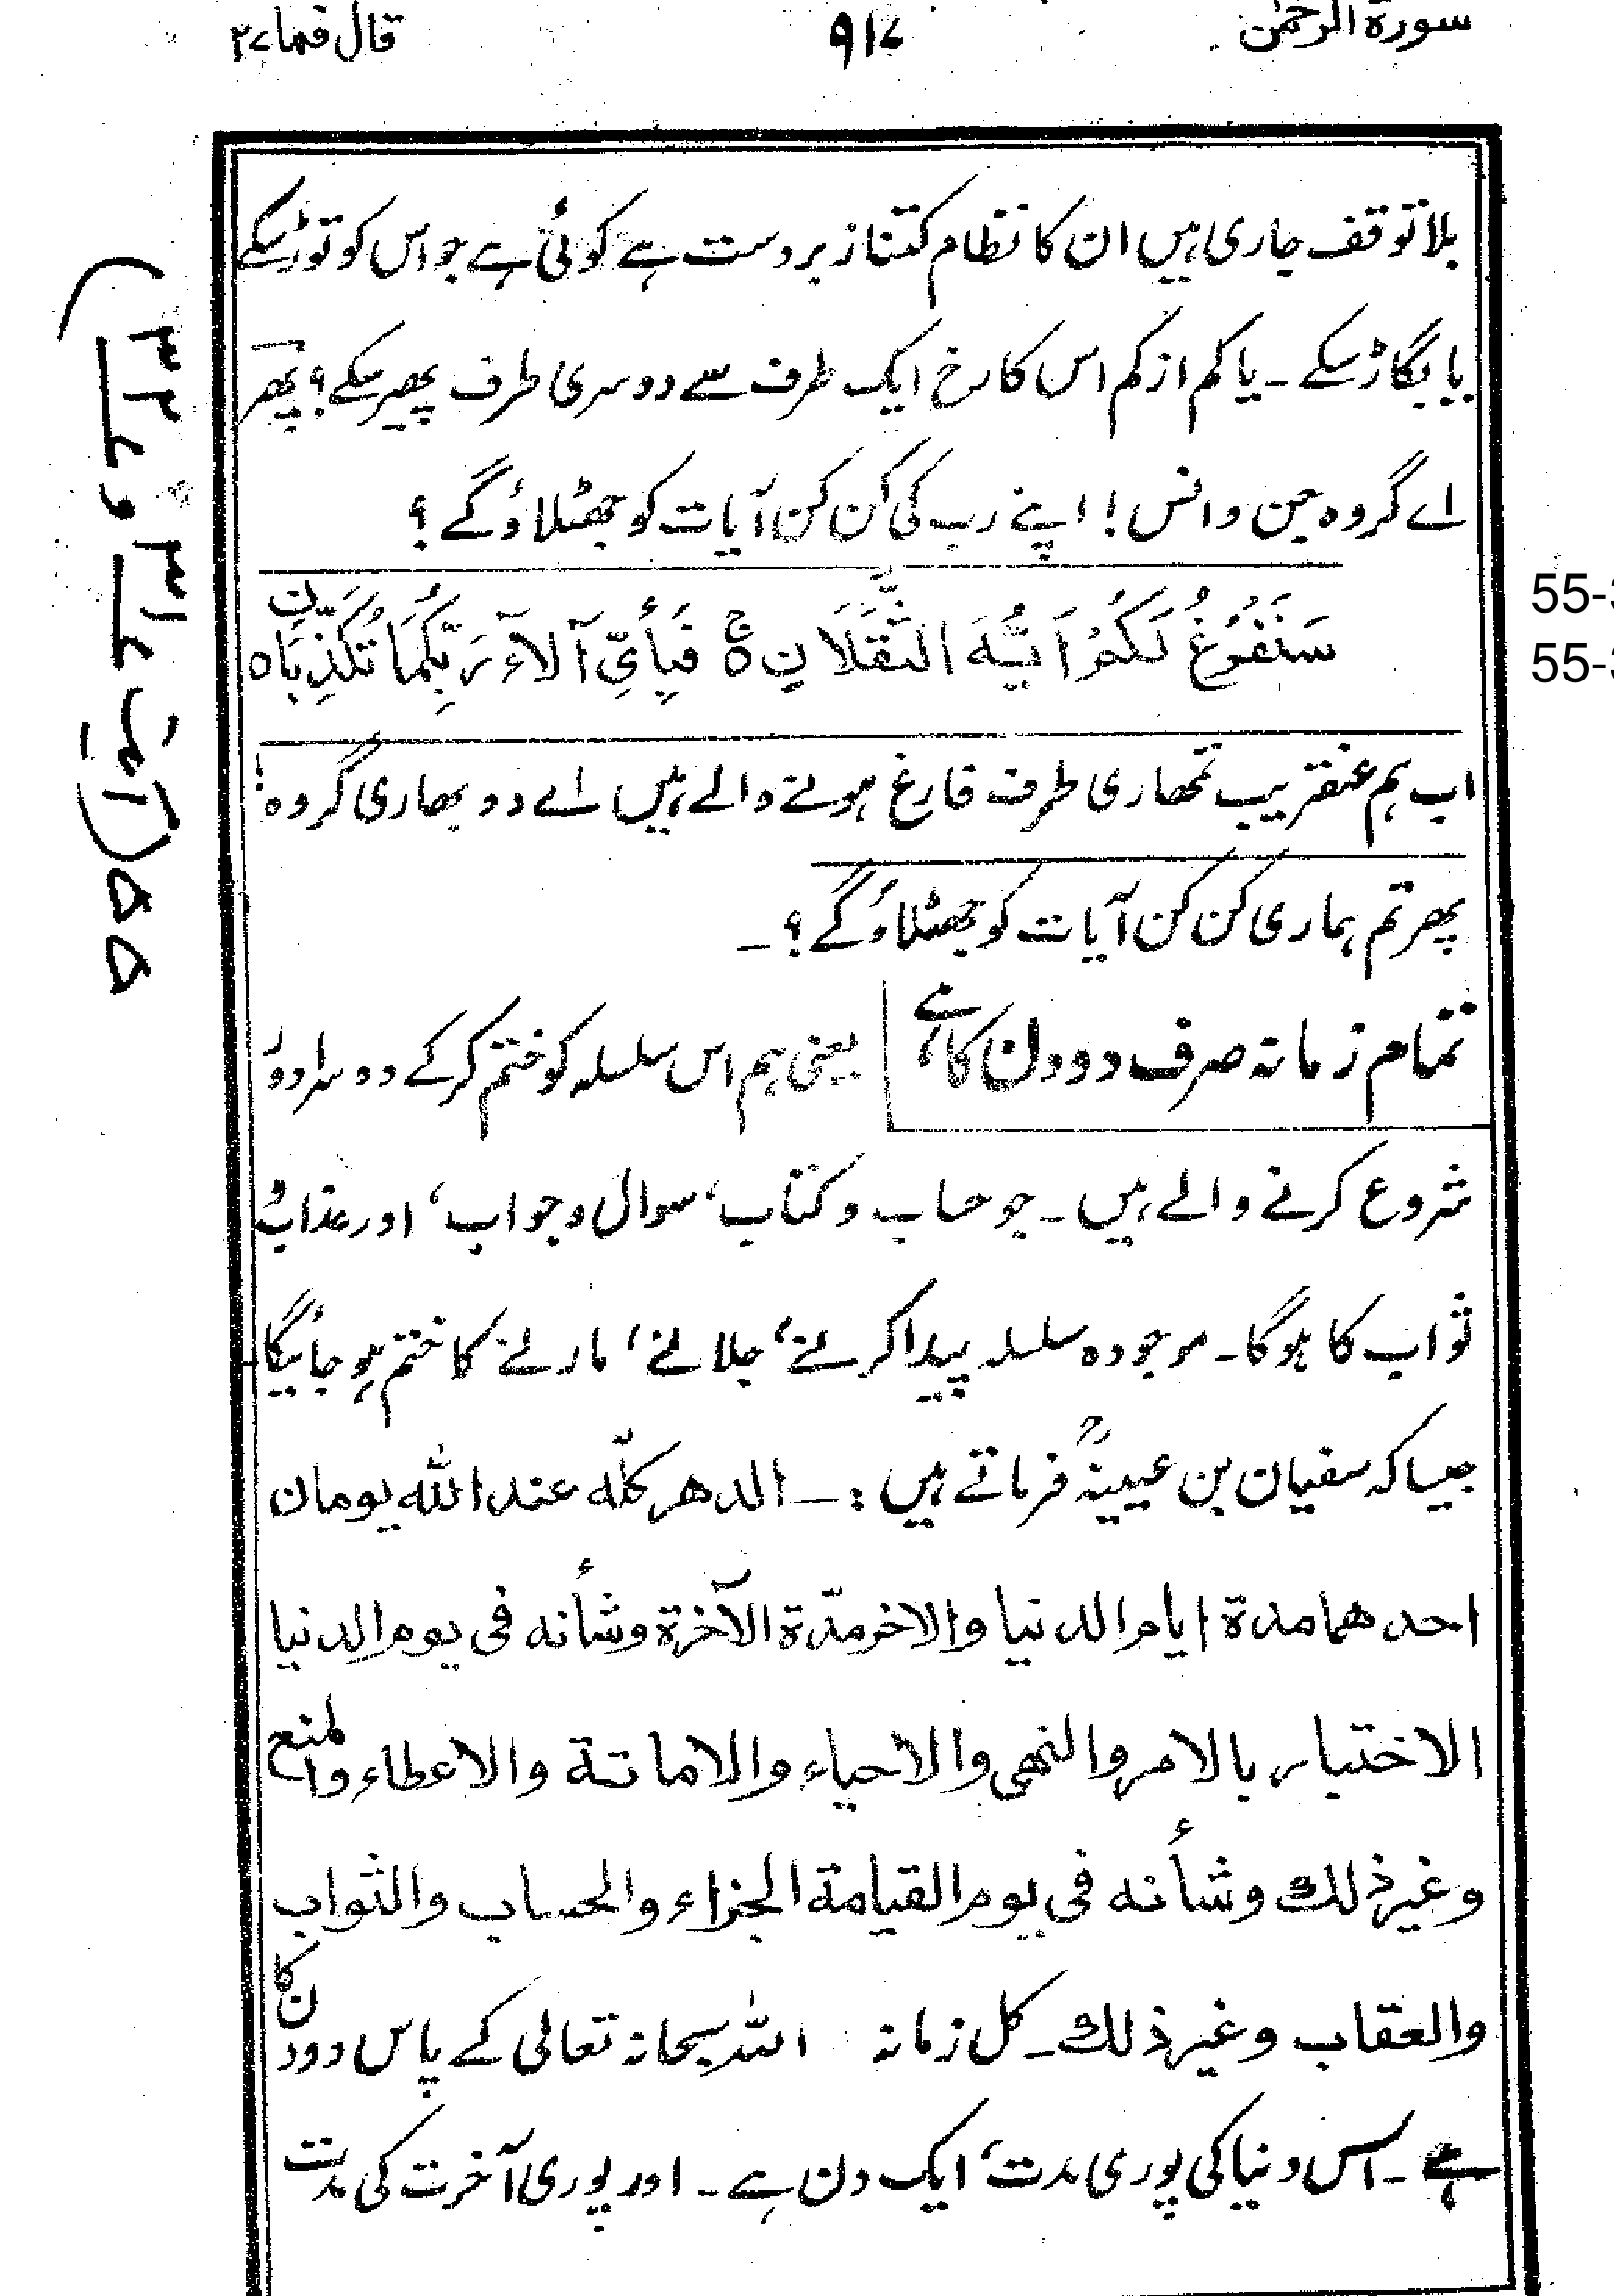 سورة الرحمٰن ۹۱۷ قال فما ۲۷
بلا توقف جاری ہیں ان کا نظام کتنا زبردست ہے کوئی ہے جو اس کو توڑ سکے
یا بگاڑ سکے ۔ یا کم از کم اس کا رخ ایک طرف سے دوسری طرف پھیر سکے؟ پھر
اے گروہ جن و انس! اپنے رب کی کن کن آیات کو جھٹلاؤ گے ؟
سَنَفْرُغُ لَكُمْ اَيُّهَ الثَّقَلَانِ ۝ۚ فَبِأَيِّ آلَاۤءِ رَبِّكُمَا تُكَذِّبَانِ ۝
55-3
55-3
اب ہم عنقریب تمھاری طرف فارغ ہونے والے ہیں اے دو بھاری گروہ!
پھر تم ہماری کن کن آیات کو جھٹلاؤ گے ؟ ـ
تمام زمانہ صرف دو دن کا ہے یعنی ہم اس سلسلہ کو ختم کرکے دوسرا دور
شروع کرنے والے ہیں ۔ جو حساب و کتاب، سوال و جواب، اور عذاب و
ثواب کا ہوگا ۔ موجودہ سلسلہ پیدا کرنے، جلانے، مارنے کا ختم ہو جائیگا
جیسا کہ سفیان بن عیینہؒ فرماتے ہیں :ـ الدهر كلّه عند الله يومان
احدهما مدة ايام الدنيا والاخر مدّة الآخرة وشأنه فى يوم الدنيا
الاختبار بالامر والنهى والاحياء والاماتة والاعطاء والمنع
وغير ذلك وشأنه فى يوم القيامة الجزاء والحساب والثواب
والعقاب وغير ذلك ۔ کل زمانہ اللہ سبحانہ تعالی کے پاس دو دن کا
ہے ۔ اس دنیا کی پوری مدت، ایک دن ہے ۔ اور پوری آخرت کی مدت
۵۵ (آیت ۳۱ و ۳۲)